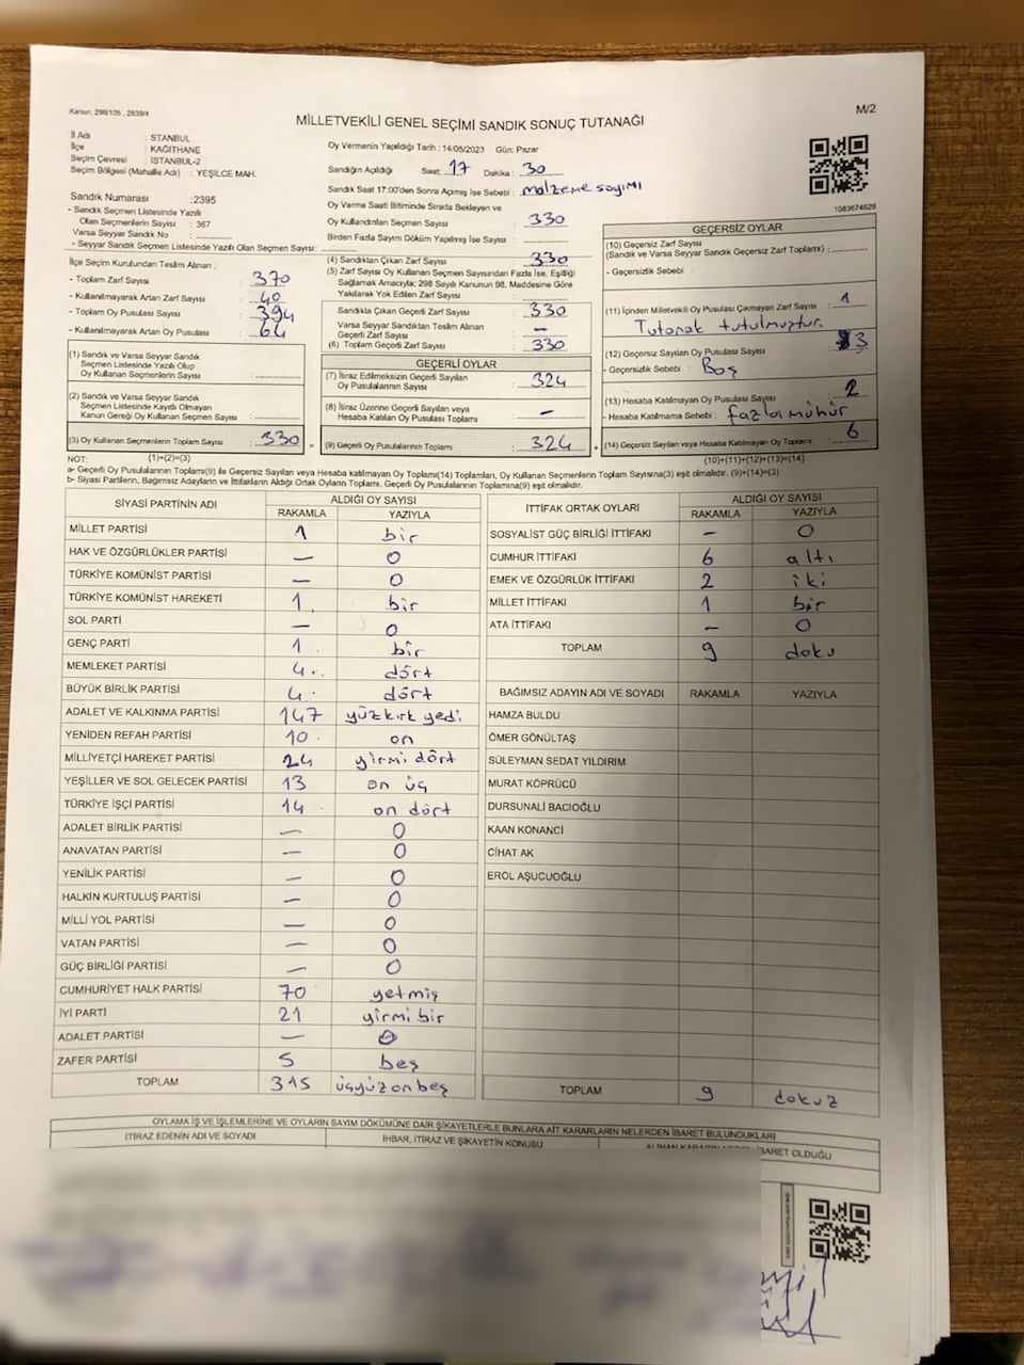 Kanun: 298/105, 2839/4
M/2
MİLLETVEKİLİ GENEL SEÇİMİ SANDIK SONUÇ TUTANAĞI
İl Adı : STANBUL
İlçe : KAĞITHANE
Seçim Çevresi : İSTANBUL-2
Seçim Bölgesi (Mahalle Adı) : YEŞİLCE MAH.
Sandık Numarası :2395
- Sandık Seçmen Listesinde Yazılı
Olan Seçmenlerin Sayısı : 367
Varsa Seyyar Sandık No :
- Seyyar Sandık Seçmen Listesinde Yazılı Olan Seçmen Sayısı:
Oy Vermenin Yapıldığı Tarih : 14/05/2023 Gün: Pazar
Sandığın Açıldığı Saat: 17 Dakika: 30
Sandık Saat 17:00'den Sonra Açılmış İse Sebebi : malzeme sayımı
Oy Verme Saati Bitiminde Sırada Bekleyen ve
Oy Kullandırılan Seçmen Sayısı : 330
Birden Fazla Sayım Döküm Yapılmış İse Sayısı :
1083674628
İlçe Seçim Kurulundan Teslim Alınan :
- Toplam Zarf Sayısı : 370
- Kullanılmayarak Artan Zarf Sayısı : 40
- Toplam Oy Pusulası Sayısı : 394
- Kullanılmayarak Artan Oy Pusulası : 64
(1) Sandık ve Varsa Seyyar Sandık
Seçmen Listesinde Yazılı Olup
Oy Kullanan Seçmenlerin Sayısı :
(2) Sandık ve Varsa Seyyar Sandık
Seçmen Listesinde Kayıtlı Olmayan
Kanun Gereği Oy Kullanan Seçmen Sayısı :
(3) Oy Kullanan Seçmenlerin Toplam Sayısı : 330 =
(4) Sandıktan Çıkan Zarf Sayısı : 330
(5) Zarf Sayısı Oy Kullanan Seçmen Sayısından Fazla İse, Eşitliği
Sağlamak Amacıyla; 298 Sayılı Kanunun 98. Maddesine Göre
Yakılarak Yok Edilen Zarf Sayısı :
Sandıkta Çıkan Geçerli Zarf Sayısı : 330
Varsa Seyyar Sandıktan Teslim Alınan
Geçerli Zarf Sayısı : —
(6) Toplam Geçerli Zarf Sayısı : 330
GEÇERLİ OYLAR
(7) İtiraz Edilmeksizin Geçerli Sayılan
Oy Pusulalarının Sayısı : 324
(8) İtiraz Üzerine Geçerli Sayılan veya
Hesaba Katılan Oy Pusulası Toplamı : —
(9) Geçerli Oy Pusulalarının Toplamı : 324 +
GEÇERSİZ OYLAR
(10) Geçersiz Zarf Sayısı
(Sandık ve Varsa Seyyar Sandık Geçersiz Zarf Toplamı) :
- Geçersizlik Sebebi :
(11) İçinden Milletvekili Oy Pusulası Çıkmayan Zarf Sayısı : 1
Tutanak tutulmuştur.
(12) Geçersiz Sayılan Oy Pusulası Sayısı : 3
- Geçersizlik Sebebi : Boş
(13) Hesaba Katılmayan Oy Pusulası Sayısı : 2
- Hesaba Katılmama Sebebi : fazla mühür
(14) Geçersiz Sayılan veya Hesaba Katılmayan Oy Toplamı : 6
NOT: (1)+(2)=(3) (10)+(11)+(12)+(13)=(14)
a- Geçerli Oy Pusulalarının Toplamı(9) ile Geçersiz Sayılan veya Hesaba katılmayan Oy Toplamı(14) Toplamları, Oy Kullanan Seçmenlerin Toplam Sayısına(3) eşit olmalıdır. (9)+(14)=(3)
b- Siyasi Partilerin, Bağımsız Adayların ve İttifakların Aldığı Ortak Oyların Toplamı, Geçerli Oy Pusulalarının Toplamına(9) eşit olmalıdır.
SİYASİ PARTİNİN ADI ALDIĞI OY SAYISI
RAKAMLA YAZIYLA
MİLLET PARTİSİ 1 bir
HAK VE ÖZGÜRLÜKLER PARTİSİ — 0
TÜRKİYE KOMÜNİST PARTİSİ — 0
TÜRKİYE KOMÜNİST HAREKETİ 1 bir
SOL PARTİ — 0
GENÇ PARTİ 1 bir
MEMLEKET PARTİSİ 4 dört
BÜYÜK BİRLİK PARTİSİ 4 dört
ADALET VE KALKINMA PARTİSİ 147 yüzkırk yedi
YENİDEN REFAH PARTİSİ 10 on
MİLLİYETÇİ HAREKET PARTİSİ 24 yirmi dört
YEŞİLLER VE SOL GELECEK PARTİSİ 13 on üç
TÜRKİYE İŞÇİ PARTİSİ 14 on dört
ADALET BİRLİK PARTİSİ — 0
ANAVATAN PARTİSİ — 0
YENİLİK PARTİSİ — 0
HALKIN KURTULUŞ PARTİSİ — 0
MİLLİ YOL PARTİSİ — 0
VATAN PARTİSİ — 0
GÜÇ BİRLİĞİ PARTİSİ — 0
CUMHURİYET HALK PARTİSİ 70 yetmiş
İYİ PARTİ 21 yirmi bir
ADALET PARTİSİ — 0
ZAFER PARTİSİ 5 beş
TOPLAM 315 üçyüz on beş
İTTİFAK ORTAK OYLARI ALDIĞI OY SAYISI
RAKAMLA YAZIYLA
SOSYALİST GÜÇ BİRLİĞİ İTTİFAKI — 0
CUMHUR İTTİFAKI 6 altı
EMEK VE ÖZGÜRLÜK İTTİFAKI 2 iki
MİLLET İTTİFAKI 1 bir
ATA İTTİFAKI — 0
TOPLAM 9 doku
BAĞIMSIZ ADAYIN ADI VE SOYADI RAKAMLA YAZIYLA
HAMZA BULDU
ÖMER GÖNÜLTAŞ
SÜLEYMAN SEDAT YILDIRIM
MURAT KÖPRÜCÜ
DURSUNALİ BACIOĞLU
KAAN KONANCİ
CİHAT AK
EROL AŞUCUOĞLU
TOPLAM 9 dokuz
OYLAMA İŞ VE İŞLEMLERİNE VE OYLARIN SAYIM DÖKÜMÜNE DAİR ŞİKAYETLERLE BUNLARA AİT KARARLARIN NELERDEN İBARET BULUNDUKLARI
İTİRAZ EDENİN ADI VE SOYADI İHBAR, İTİRAZ VE ŞİKAYETİN KONUSU İBARET OLDUĞU